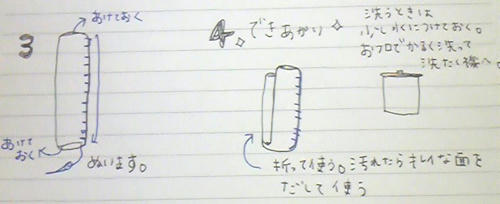 3
あけておく
あけて
おく
ぬいます。
4.できあがり
折って使う。汚れたらキレイな面を
だして使う
洗うときは
少し水につけておく。
おフロでかるく洗って
洗たく機へ。